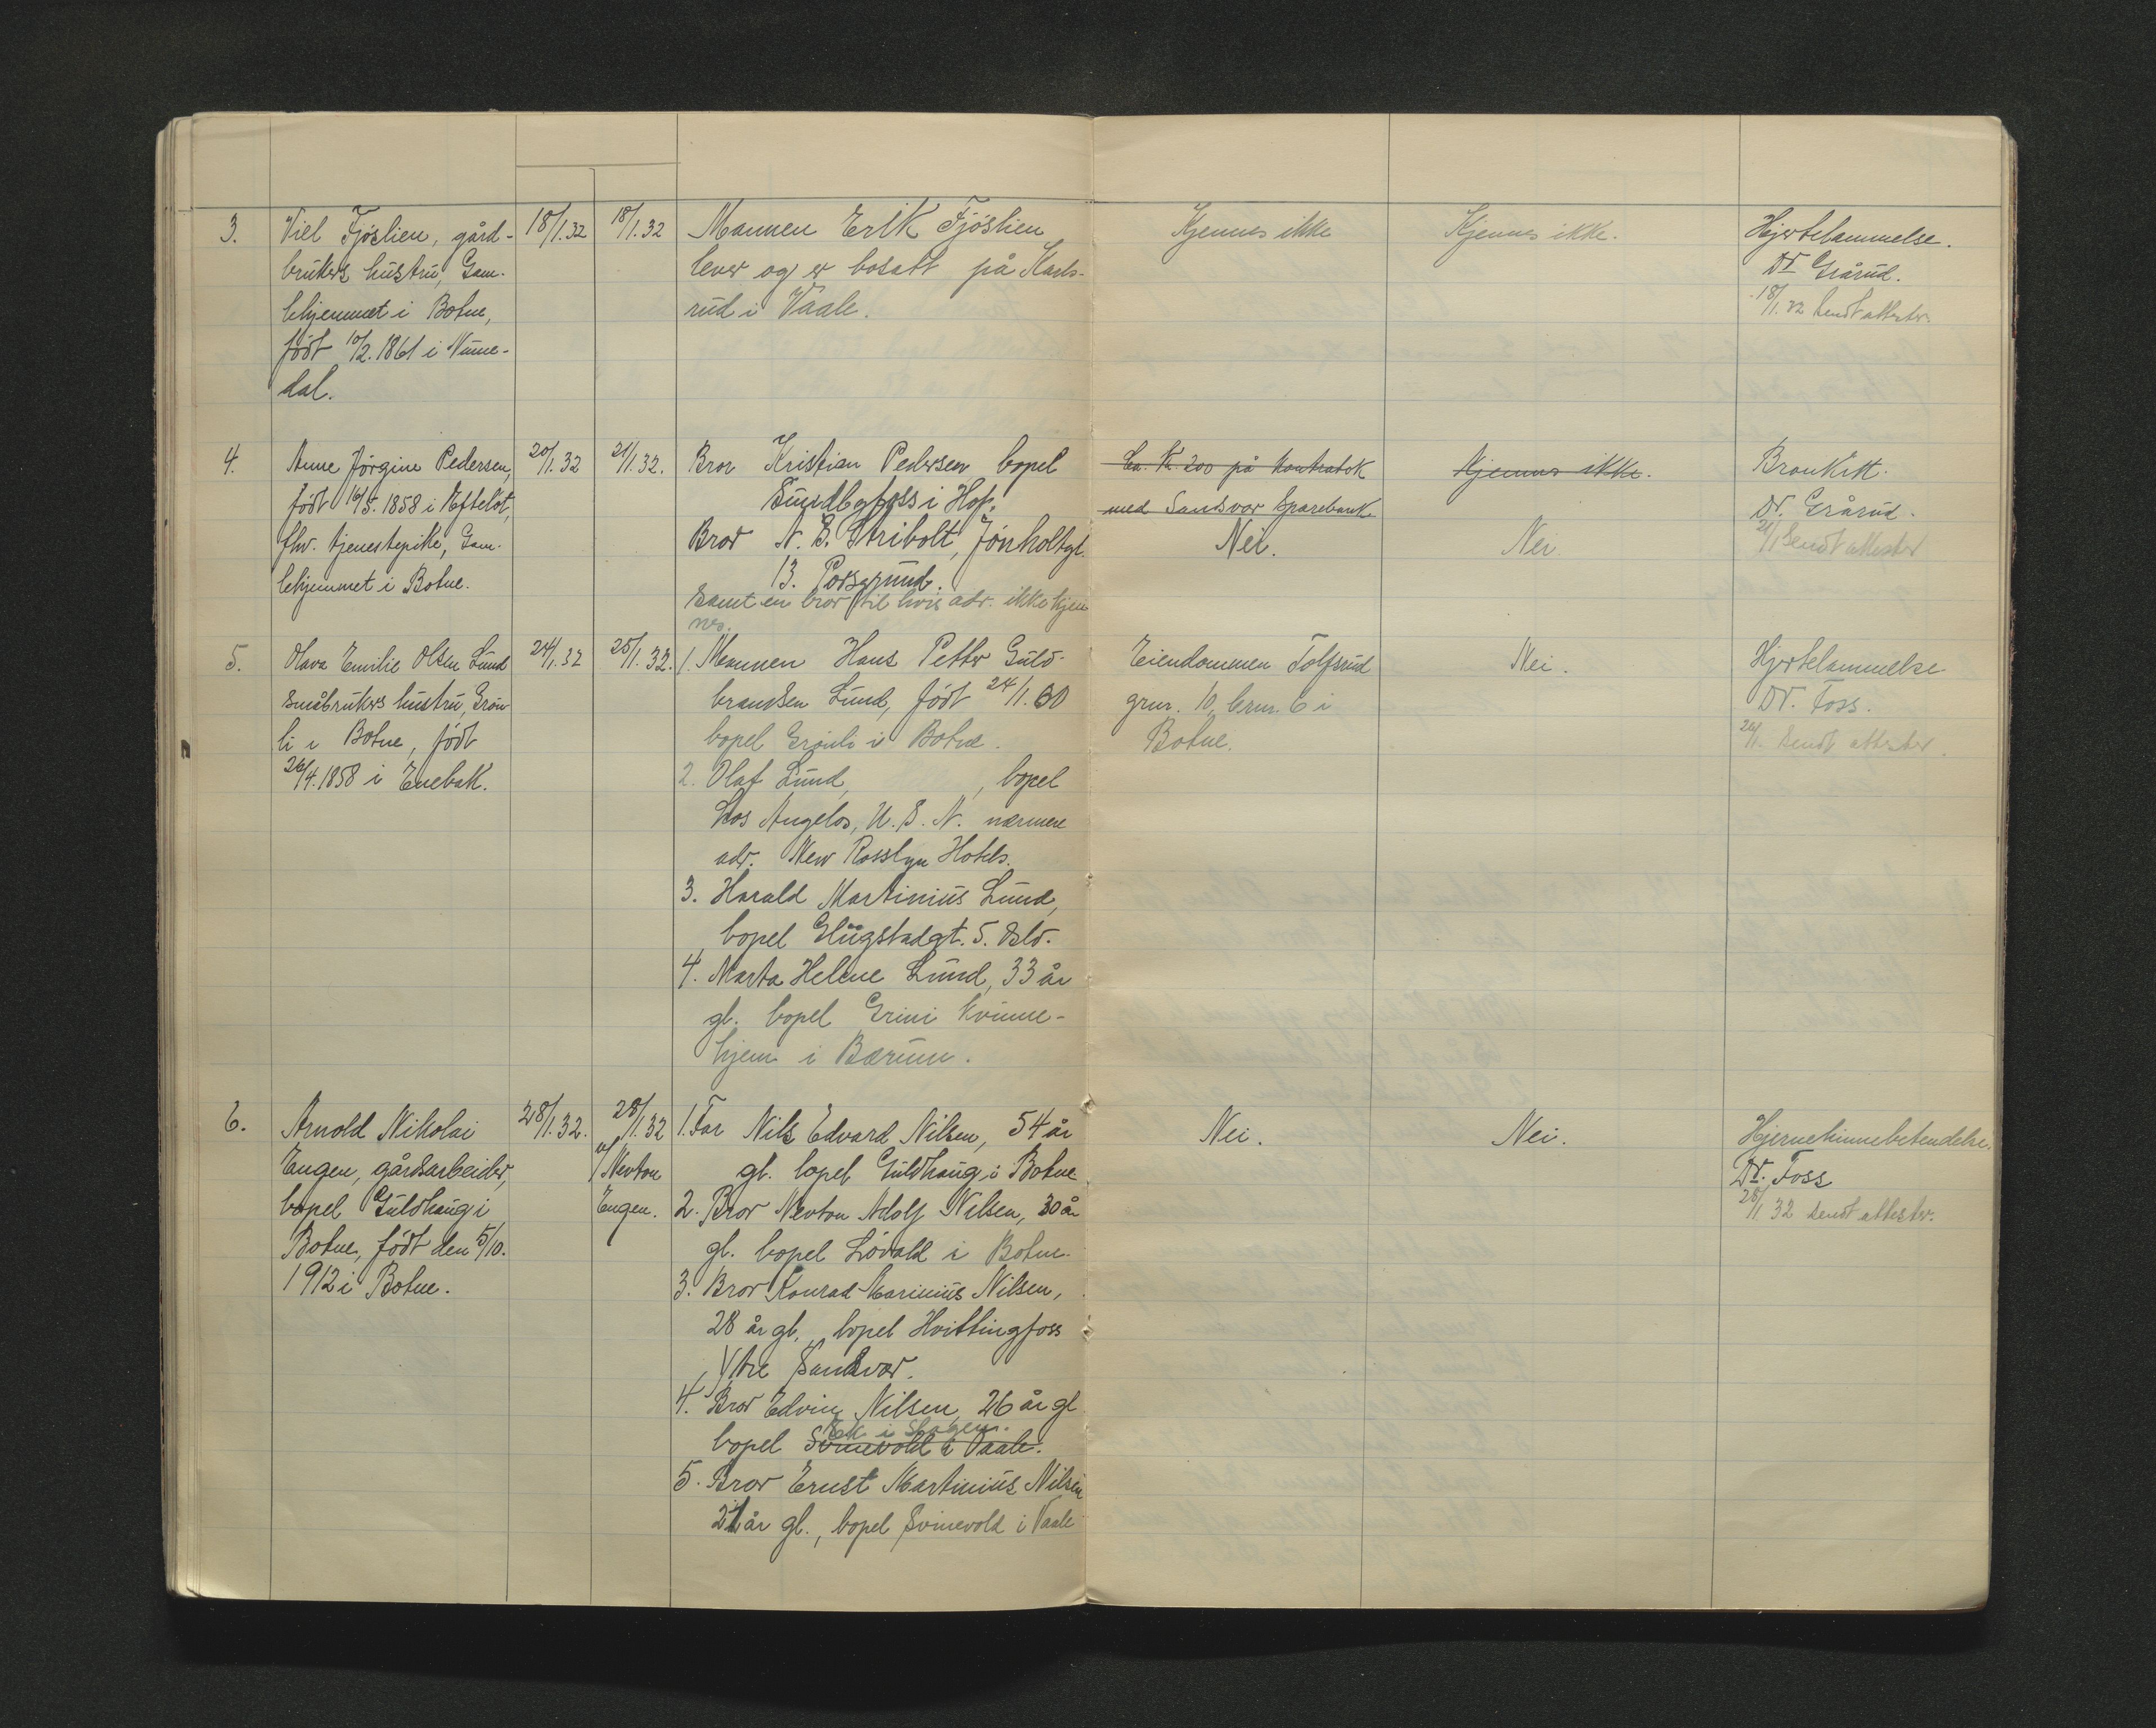 3.
Viel Fjøslien, gård-
brukers hustru, Gam-
lehjemmet i Botne,
født 10/2.1861 i Nume-
dal.
18/1.32
18/1.32
Mannen Erik Fjøslien
lever og er bosatt på Karls-
rud i Vaale.
Kjennes ikke
Kjennes ikke.
Hjertelammelse.
Dr Grårud.
18/1.32 sendt attester.
4.
Anne Jørgine Pedersen,
født 16/5.1858 i Efteløt,
fhv. tjenestepike, Gam-
lehjemmet i Botne.
20/1.32
21/1.32.
Bror Kristian Pedersen bopel
Sundbyfoss i Hof.
Bror N. B. Stribolt, Jønholtgt.
13. Porsgrund.
Samt en bror til hvis adr. ikke kjen
nes.
Ca. Kr. 200 på kontrabok
med Sandsvær Sparebank
Nei.
Kjennes ikke.
Nei.
Bronkitt.
Dr. Grårud.
21/1 Sendt attester
5.
Olava Emilie Olsen Lund
småbrukers hustru, Grøn
li i Botne, født
26/4.1858 i Enebak.
24/1.32
25/1.32.
1. Mannen Hans Petter Guld-
brandsen Lund, født 24/1.60
bopel Grønli i Botne.
2. Olaf Lund, , bopel
Los Angelos, U.S.A. nærmere
adr. New Rosslyn Hotels.
3. Harald Martinius Lund,
bopel Glügstadgt. 5. Oslo.
4. Marta Helene Lund, 33 år
gl. bopel Grini kvinne-
hjem i Bærum.
Eiendommen Tolfsrud
grnr. 10, brnr. 6 i
Botne.
Nei.
Hjertelammelse
Dr. Foss.
26/1. Sendt attester.
6.
Arnold Nikolai
Engen, gårdsarbeider,
bopel Guldhaug i
Botne, født den 5/10.
1912 i Botne.
28/1.32.
28/1.32
v/
Nevton
Engen.
1. Far Nils Edvard Nilsen, 54 år
gl. bopel Guldhaug i Botne
2. Bror Nevton Adolf Nilsen, 30 år
gl. bopel Løvald i Botne.
3. Bror Konrad Marinius Nilsen,
28 år gl., bopel Hvittingfoss
Ytre Sandsvær.
4. Bror Edvin Nilsen, 26 år gl
Ek i Skogen.
bopel Svinevold i Vaale.
5. Bror Ernst Martinius Nilsen
21 år gl., bopel Svinevold i Vaale
Nei.
Nei.
Hjernehinnebetendelse.
Dr. Foss
28/1 32 sendt attester.